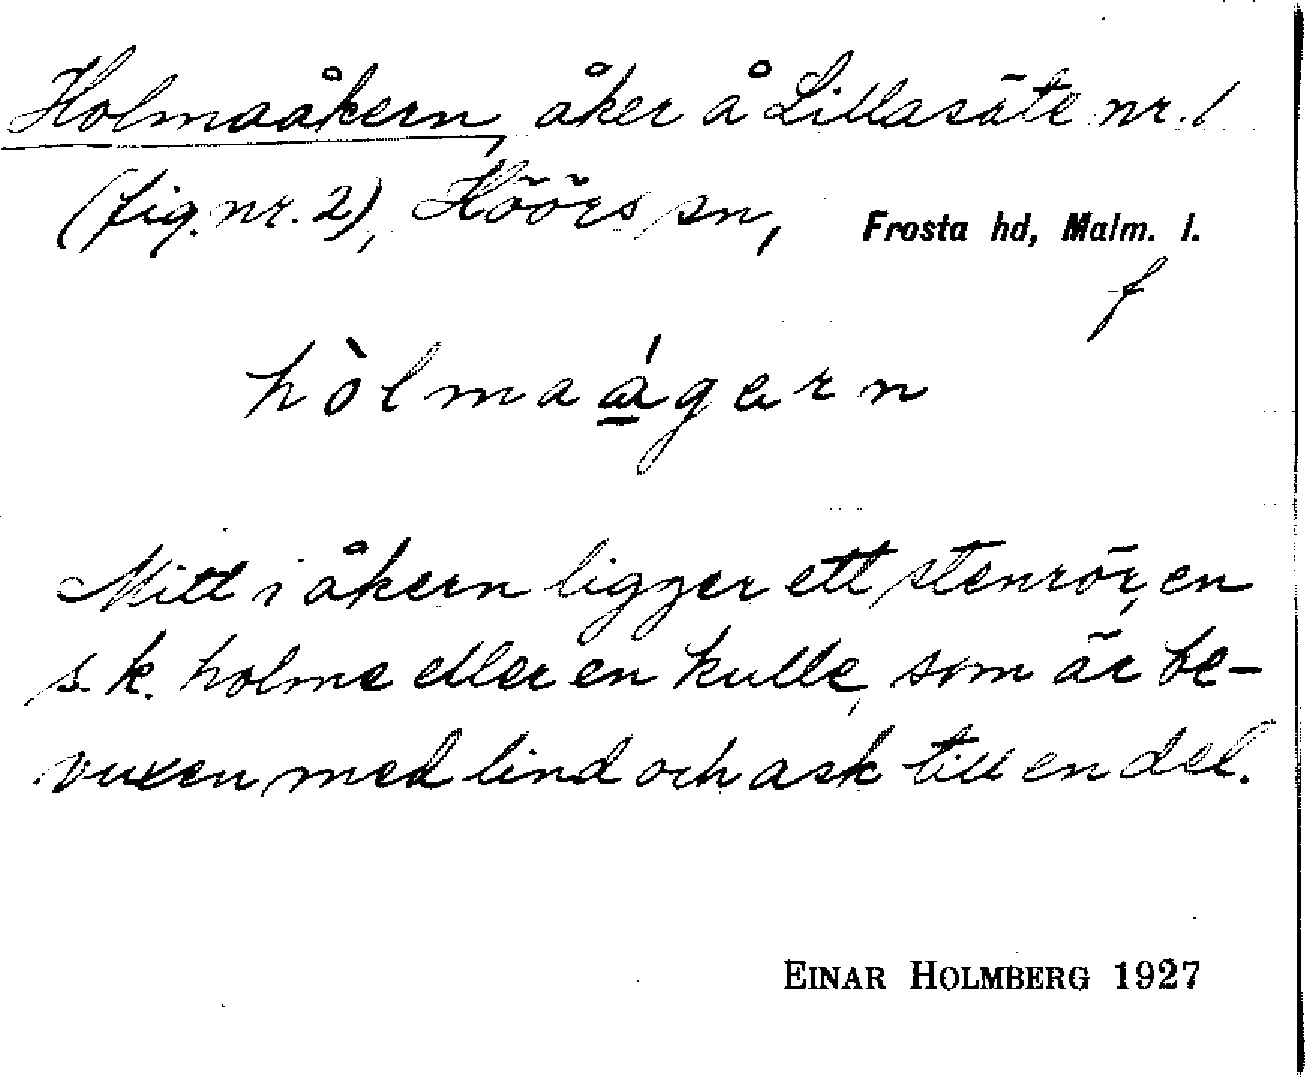 Holmaåkern, åker å Lillasäte nr. 1
(fig. nr. 2), Höörs sn, Frosta hd, Malm. l.
f
hòlmaágarn
Mitt i åkern ligger ett stenrör, en
s.k. holme eller en kulle, som är be-
vuxen med lind och ask till en del.
EINAR HOLMBERG 1927